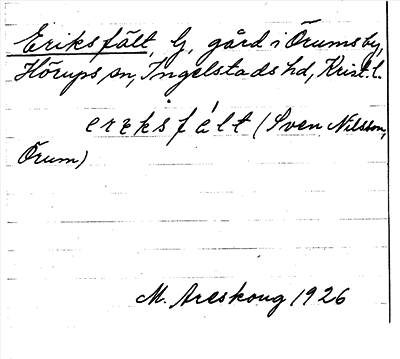 Eriksfält, G, gård i Örums by,
Hörups sn, Ingelstads hd, Krist. l.
erɪksfált (Sven Nilsson,
Örum)
M. Areskoug 1926